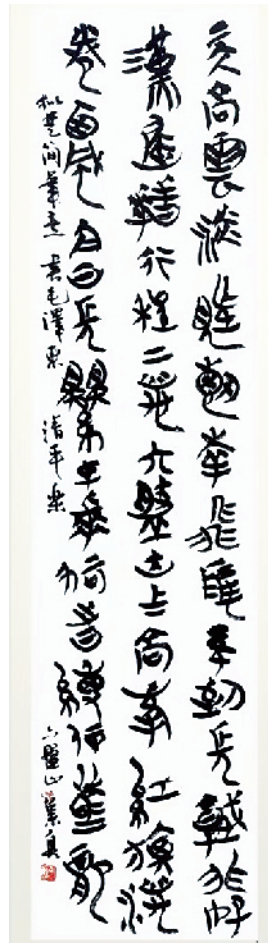 天高雲淡望斷南飛雁不到長城非好
漢屈指行程二萬六盤山上高峰紅旗漫
卷西風今日長纓在手何時縛住蒼龍
楚簡筆意 書毛澤東 清平樂 六盤山